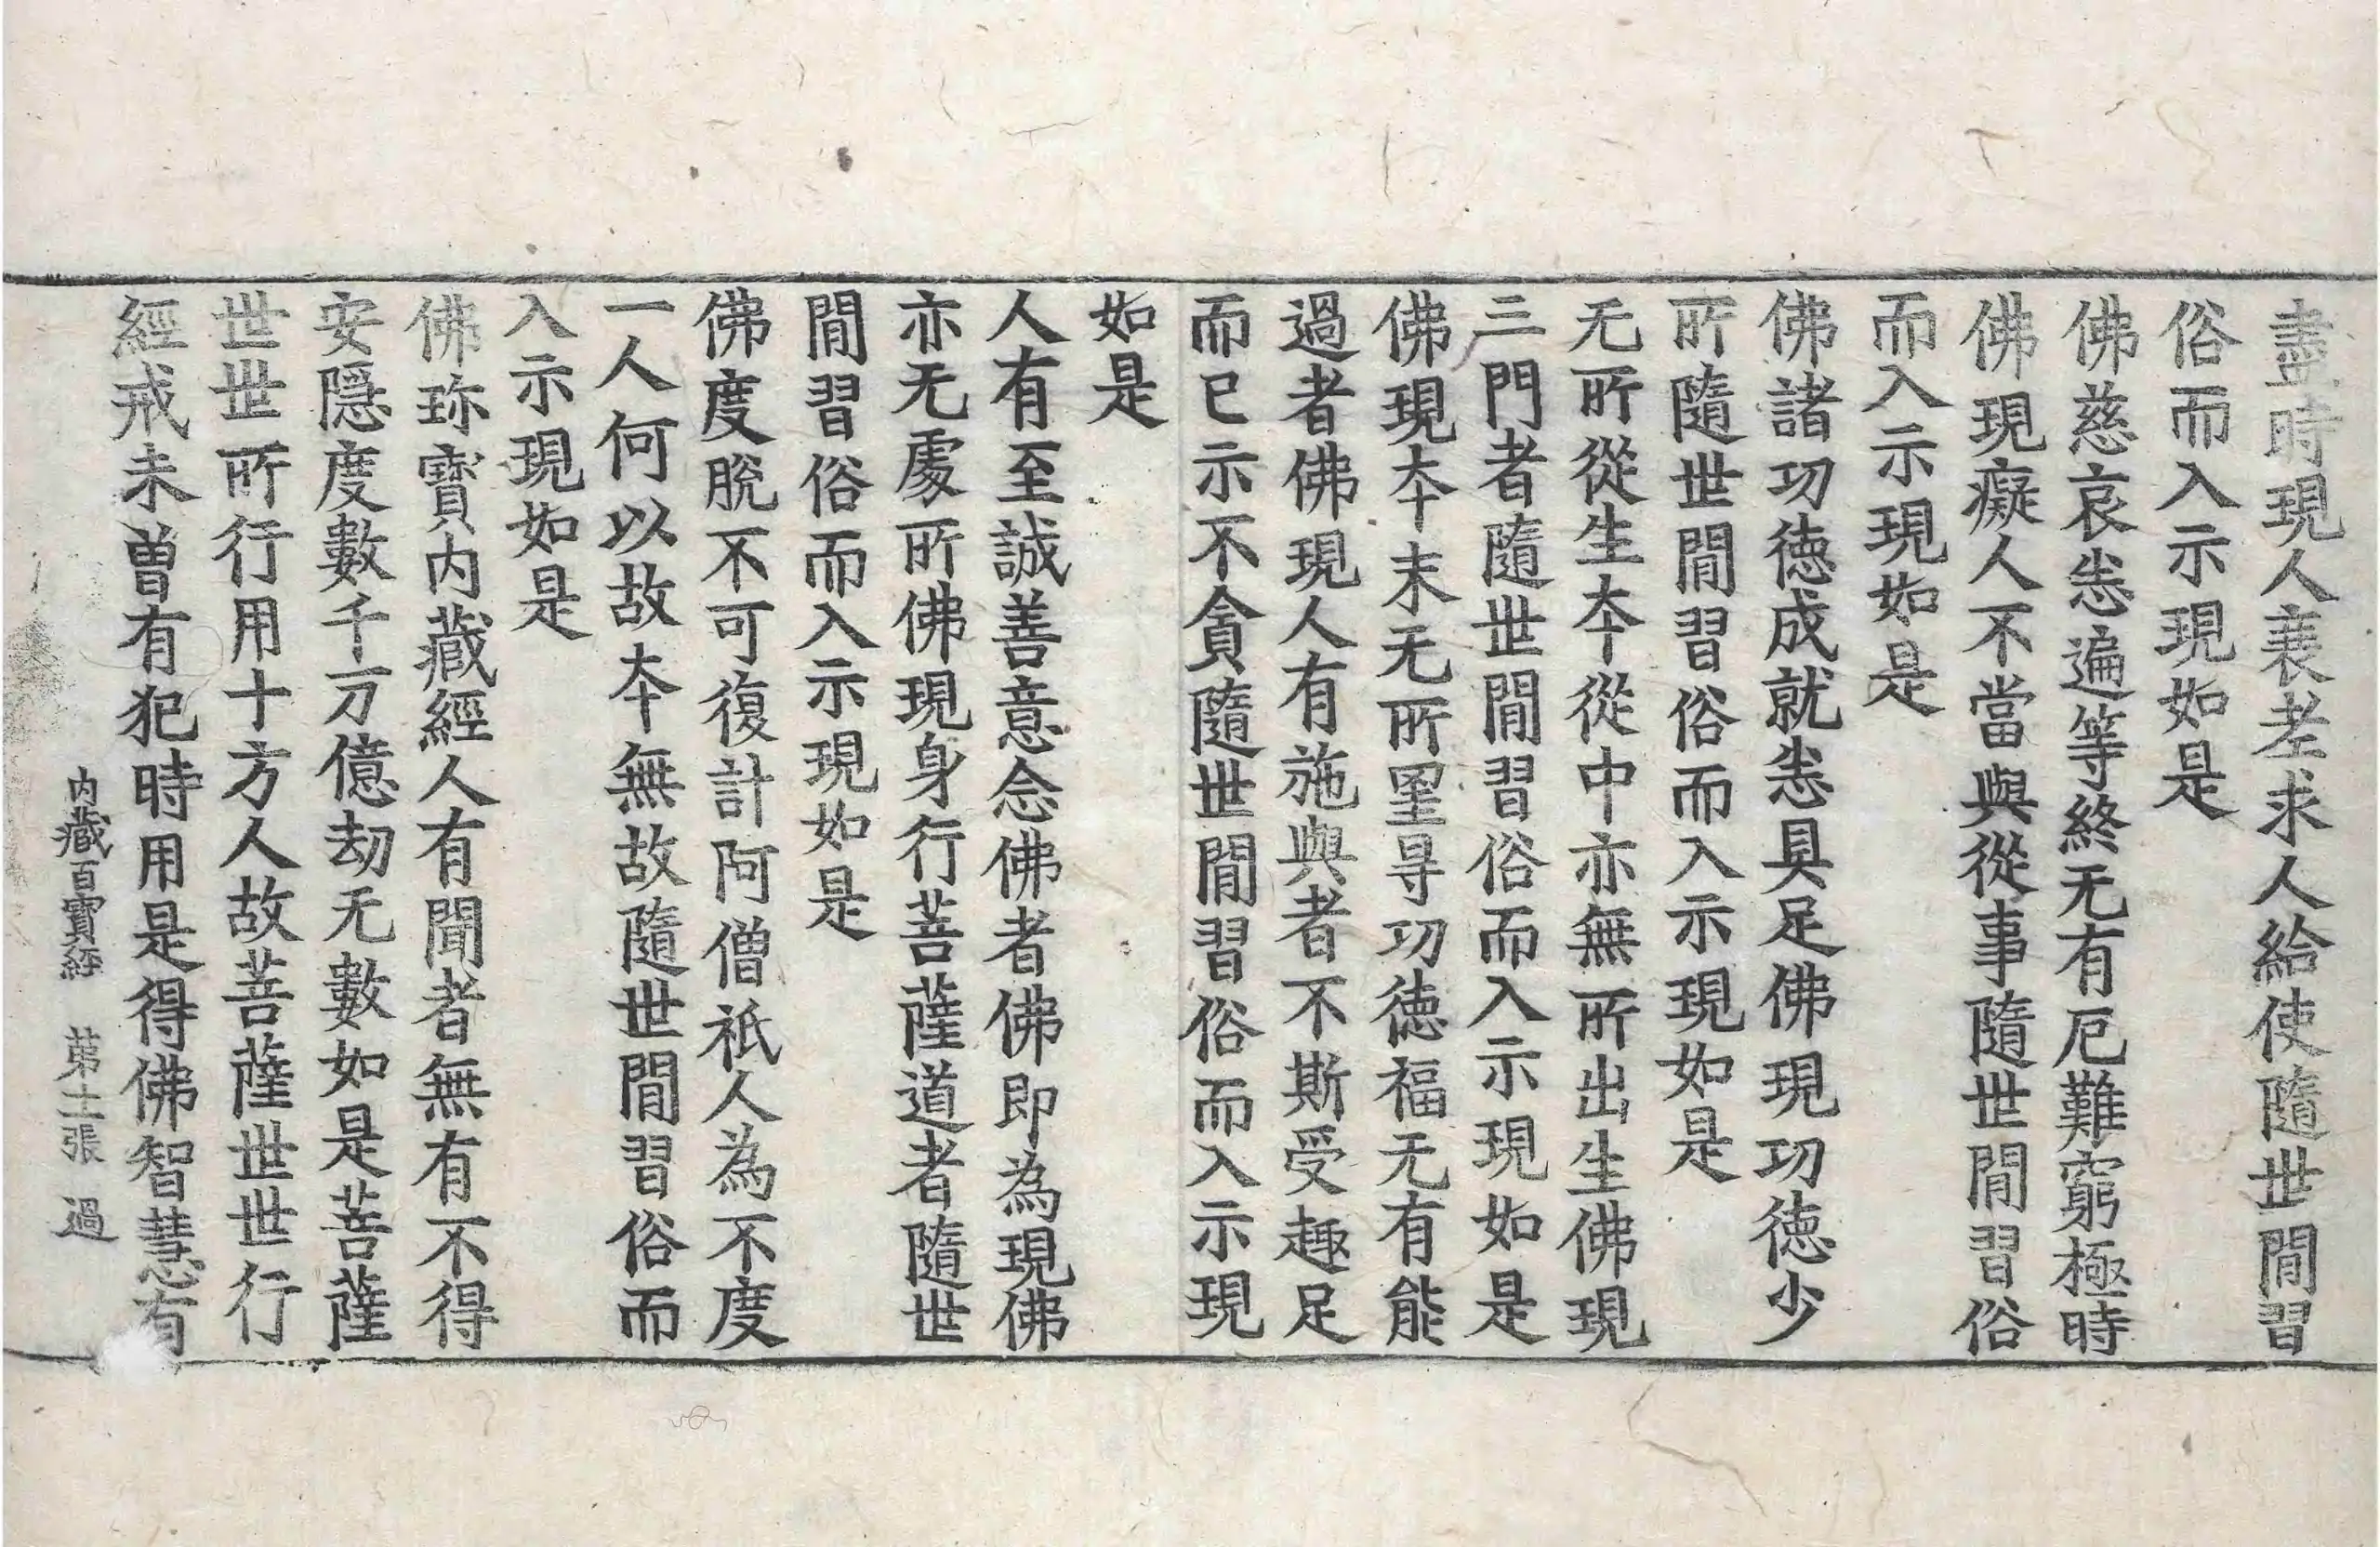 盡時現人衰老求人給使隨世間習
俗而入示現如是
佛慈哀悉遍等終无有厄難窮極時
佛現癡人不當與從事隨世間習俗
而入示現如是
佛諸功德成就悉具足佛現功德少
所隨世間習俗而入示現如是
无所從生本從中亦無所出生佛現
三門者隨世間習俗而入示現如是
佛現本末无所罣㝵功德福无有能
過者佛現人有施與者不斯受趣足
而已示不貪隨世間習俗而入示現
如是
人有至誠善意念佛者佛即為現佛
亦无處所佛現身行菩薩道者隨世
間習俗而入示現如是
佛度脫不可復計阿僧祇人為不度
一人何以故本無故隨世間習俗而
入示現如是
佛珎寶內藏經人有聞者無有不得
安隱度數千万億劫无數如是菩薩
世世所行用十方人故菩薩世世行
經戒未曾有犯時用是得佛智慧有
內藏百寶經 第十一張 過